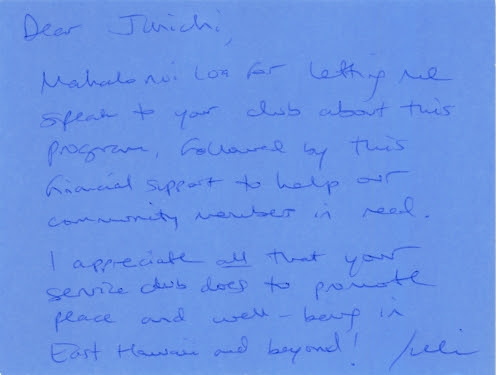 Dear Junichi,
Mahalo nui loa for letting me
speak to your club about this
program, followed by this
financial support to help our
community member in need.
I appreciate all that your
service club does to promote
peace and well-being in
East Hawaii and beyond!